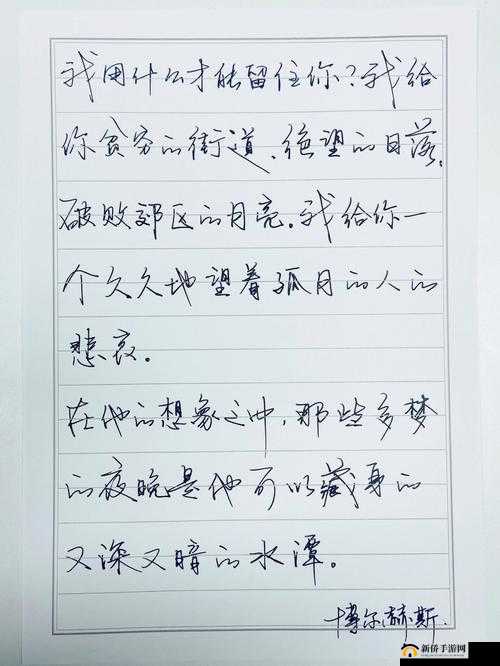 我用什么才能留住你?我给
你贫穷的街道、绝望的日落、
破败郊区的月亮。我给你一
个久久地望着孤月的人的
悲哀。
在他的想象之中,那些多梦
的夜晚是他可以藏身的
又深又暗的水潭。
博尔赫斯.
新侨手游网